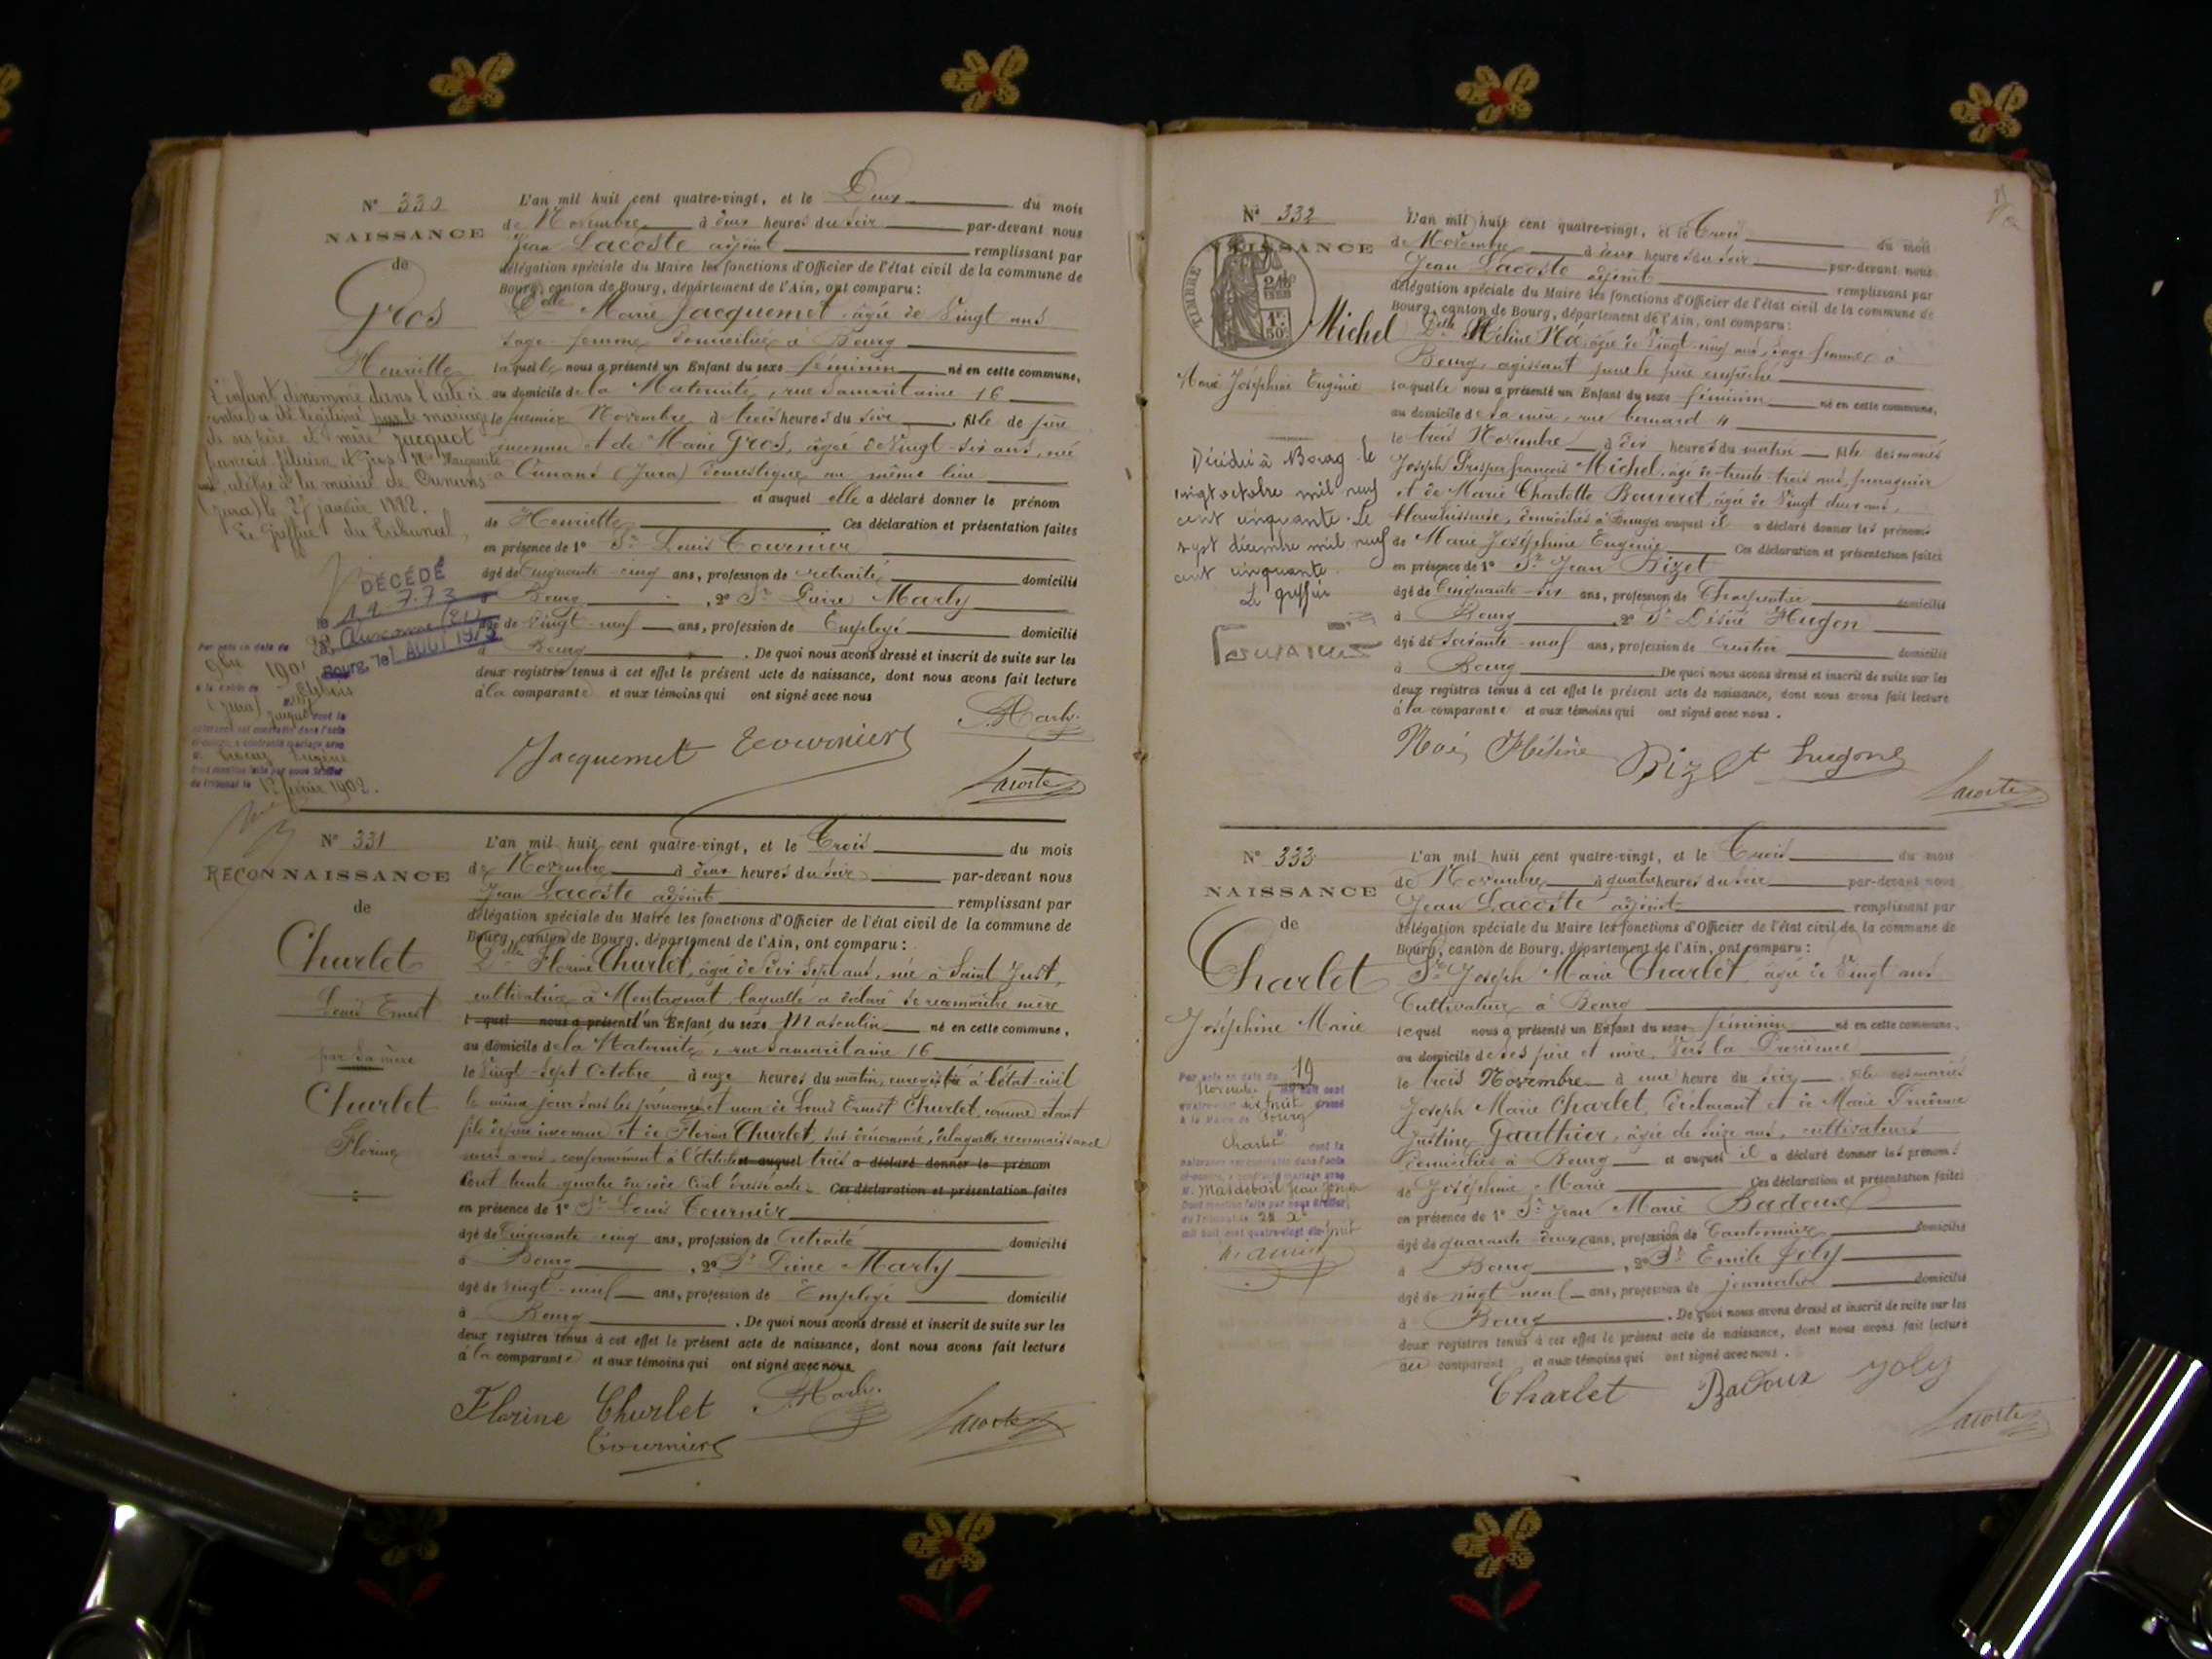 N° 330
NAISSANCE
de
Gros
Henriette
L'an mil huit cent quatre-vingt, et le Deux du mois
de Novembre à deux heures du soir par-devant nous
Jean Lacoste adjoint remplissant par
délégation spéciale du Maire les fonctions d'Officier de l'état civil de la commune de
Bourg, canton de Bourg, département de l'Ain, ont comparu :
Delle Marie Jacquemet âgée de Vingt ans
sage-femme domiciliée à Bourg
laquelle nous a présenté un Enfant du sexe féminin né en cette commune,
au domicile de la Maternité, rue Samaritaine 16
le premier Novembre à trois heures du soir, fille de père
inconnu et de Marie Gros, âgée de Vingt-six ans, née
à Cunans (Jura) domestique au même lieu
et auquel elle a déclaré donner le prénom
de Henriette Ces déclaration et présentation faites
en présence de 1° Sr Louis Tournier
âgé de Cinquante-cinq ans, profession de retraité domicilié
à Bourg, 2° Sr Marly
âgé de vingt-neuf ans, profession de Employé domicilié
à Bourg. De quoi nous avons dressé et inscrit de suite sur les
deux registres tenus à cet effet le présent acte de naissance, dont nous avons fait lecture
à la comparante et aux témoins qui ont signé avec nous
Jacquemet Tournier Marly
Lacoste
L'enfant dénommé dans l'acte ci
contre a été légitimé par le mariage
de ses père et mère Jacquot
françois félicien et Gros Mie Marguerite
célébré à la mairie de Cunans
(Jura) le 27 janvier 1882.
Le Greffier du Tribunal,
DÉCÉDÉ
le 11.7.73
à Auxonne (21)
Bourg, le 1 AOUT 1973
Par acte en date du
9bre 1901
à la Mairie de
(Jura)
Jacquot dont la
naissance est constatée dans l'acte
ci-contre, a contracté mariage avec
M. Eugène
Dont mention faite par nous Greffier
du Tribunal le 12 février 1902.
N° 331
RECONNAISSANCE
de
Churlet
Louis Ernest
par sa mère
Churlet
Florine
L'an mil huit cent quatre-vingt, et le Trois du mois
de Novembre à deux heures du soir par-devant nous
Jean Lacoste adjoint remplissant par
délégation spéciale du Maire les fonctions d'Officier de l'état civil de la commune de
Bourg, canton de Bourg, département de l'Ain, ont comparu :
Delle Florine Churlet, âgée de dix sept ans, née à Saint Just,
cultivatrice à Montagnat, laquelle a déclaré se reconnaître mère
lequel nous a présenté d'un Enfant du sexe Masculin né en cette commune,
au domicile de la Maternité, rue Samaritaine 16
le Vingt-Sept Octobre à onze heures du matin, enregistré à l'état-civil
le même jour sous les prénoms et nom de Louis Ernest Churlet, comme étant
fils de père inconnu et de Florine Churlet, sus dénommée, de laquelle reconnaissance
nous avons, conformément à l'article et auquel trois a déclaré donner le prénom
cent trente quatre du code Civil dressé acte. Ces déclaration et présentation faites
en présence de 1° Sr Louis Tournier
âgé de Cinquante-cinq ans, profession de retraité domicilié
à Bourg, 2° Sr Marly
âgé de vingt-neuf ans, profession de Employé domicilié
à Bourg. De quoi nous avons dressé et inscrit de suite sur les
deux registres tenus à cet effet le présent acte de naissance, dont nous avons fait lecture
à la comparante et aux témoins qui ont signé avec nous
Florine Churlet Marly
Tournier Lacoste
N° 332
NAISSANCE
TIMBRE
Michel
Marie Joséphine Eugénie
L'an mil huit cent quatre-vingt, et le Trois du mois
de Novembre à deux heures du soir par-devant nous
Jean Lacoste adjoint remplissant par
délégation spéciale du Maire les fonctions d'Officier de l'état civil de la commune de
Bourg, canton de Bourg, département de l'Ain, ont comparu :
Delle Hélène Noé, âgée de Vingt-cinq ans, sage femme à
Bourg, agissant pour le père empêché
laquelle nous a présenté un Enfant du sexe féminin né en cette commune,
au domicile de sa mère, rue Bernard 4
le trois Novembre à dix heures du matin fille des mariés
Joseph Prosper françois Michel, âgé de trente-trois ans
et de Marie Charlotte Bouveret, âgée de Vingt deux ans,
Blanchisseuse, domiciliés à Bourg et auquel il a déclaré donner les prénoms
de Marie Joséphine Eugénie Ces déclaration et présentation faites
en présence de 1° Sr Jean Bizet
âgé de Cinquante-six ans, profession de Charpentier domicilié
à Bourg, 2° Sr Désiré Hugon
âgé de soixante-neuf ans, profession de rentier domicilié
à Bourg De quoi nous avons dressé et inscrit de suite sur les
deux registres tenus à cet effet le présent acte de naissance, dont nous avons fait lecture
à la comparante et aux témoins qui ont signé avec nous.
Noé Hélène Bizet hugon
Lacoste
Décédée à Bourg le
vingt octobre mil neuf
cent cinquante. Le
sept décembre mil neuf
cent cinquante.
Le greffier
N° 333
NAISSANCE
de
Charlet
Joséphine Marie
L'an mil huit cent quatre-vingt, et le Trois du mois
de Novembre à quatre heures du soir par-devant nous
Jean Lacoste adjoint remplissant par
délégation spéciale du Maire les fonctions d'Officier de l'état civil de la commune de
Bourg, canton de Bourg, département de l'Ain, ont comparu :
Sr Joseph Marie Charlet, âgé de Vingt ans
Cultivateur à Bourg
lequel nous a présenté un Enfant du sexe féminin né en cette commune,
au domicile de ses père et mère, Vers la Providence
le trois Novembre à une heure du soir fille des mariés
Joseph Marie Charlet, déclarant et de Marie
Justine Gauthier, âgée de seize ans, cultivateurs
domiciliés à Bourg et auquel il a déclaré donner les prénoms
de Joséphine Marie Ces déclaration et présentation faites
en présence de 1° Sr Jean Marie Badoux
âgé de quarante-deux ans, profession de Cantonnier domicilié
à Bourg, 2° Sr Emile Joly
âgé de vingt-neuf ans, profession de journalier domicilié
à Bourg. De quoi nous avons dressé et inscrit de suite sur les
deux registres tenus à cet effet le présent acte de naissance, dont nous avons fait lecture
au comparant et aux témoins qui ont signé avec nous.
Charlet Badoux Joly
Lacoste
Par acte en date du 19
Novembre mil huit cent
quatre-vingt dix huit dressé
à la Mairie de Bourg
Charlet dont la
naissance est constatée dans l'acte
ci-contre, a contracté mariage avec
M.
Dont mention faite par nous Greffier
du Tribunal le 28 Xe
mil huit cent quatre-vingt dix-huit